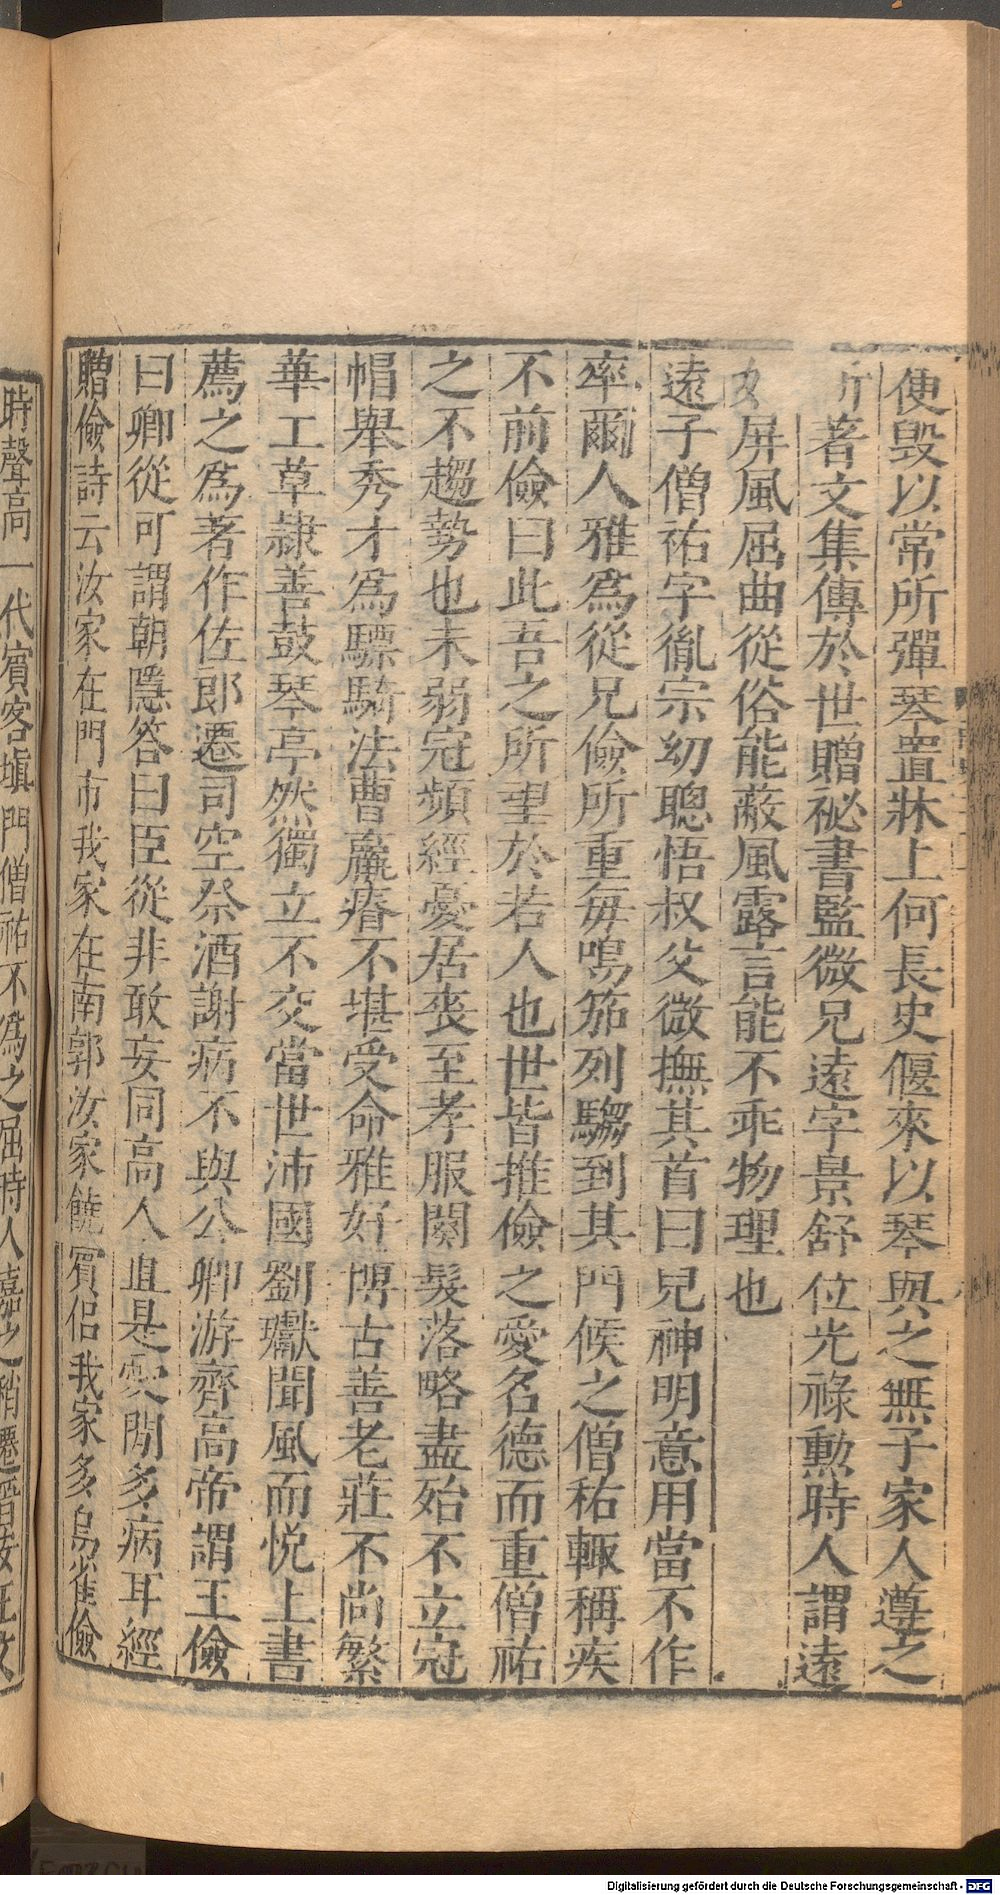 便毀以常所彈琴置牀上何長史偃來以琴與之無子家人遵之
所著文集傳於世贈祕書監微兄遠字景舒位光祿勳時人謂遠
如屏風屈曲從俗能蔽風露言能不乖物理也
遠子僧祐字胤宗幼聰悟叔父微撫其首曰兒神明意用當不作
率爾人雅爲從兄儉所重每鳴笳列騶到其門候之僧祐輒稱疾
不前儉曰此吾之所望於若人也世皆推儉之愛名德而重僧祐
之不趨勢也未弱冠頻經憂居喪至孝服闋髮落略盡殆不立冠
帽舉秀才爲驃騎法曹羸瘠不堪受命雅好博古善老莊不尚繁
華工草隸善鼓琴亭然獨立不交當世沛國劉瓛聞風而悅上書
薦之爲著作佐郎遷司空祭酒謝病不與公卿游齊高帝謂王儉
曰卿從可謂朝隱答曰臣從非敢妄同高人直是愛閒多病耳經
贈儉詩云汝家在門市我家在南郭汝家饒賓侶我家多鳥雀儉
時聲高一代賓客塡門僧祐不爲之屈時人嘉之稍遷晉安王文
Digitalisierung gefördert durch die Deutsche Forschungsgemeinschaft - DFG